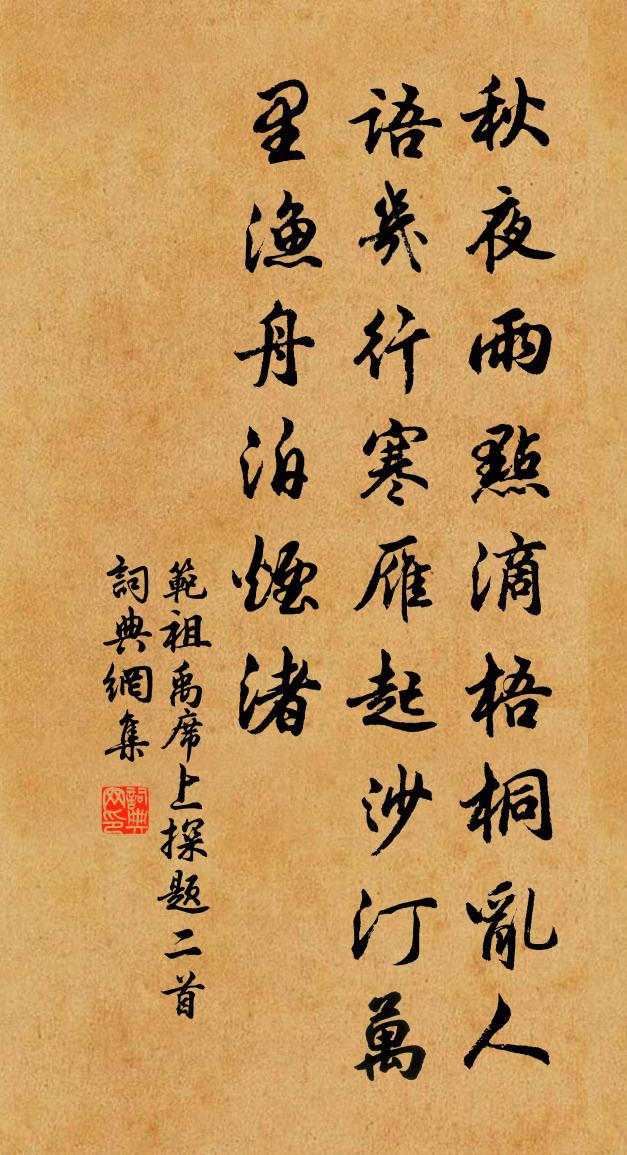 秋夜雨點滴梧桐亂人
語幾行寒雁起沙汀萬
里漁舟泊煙渚
範祖禹席上探題二首
詞典網集
詞典
网印